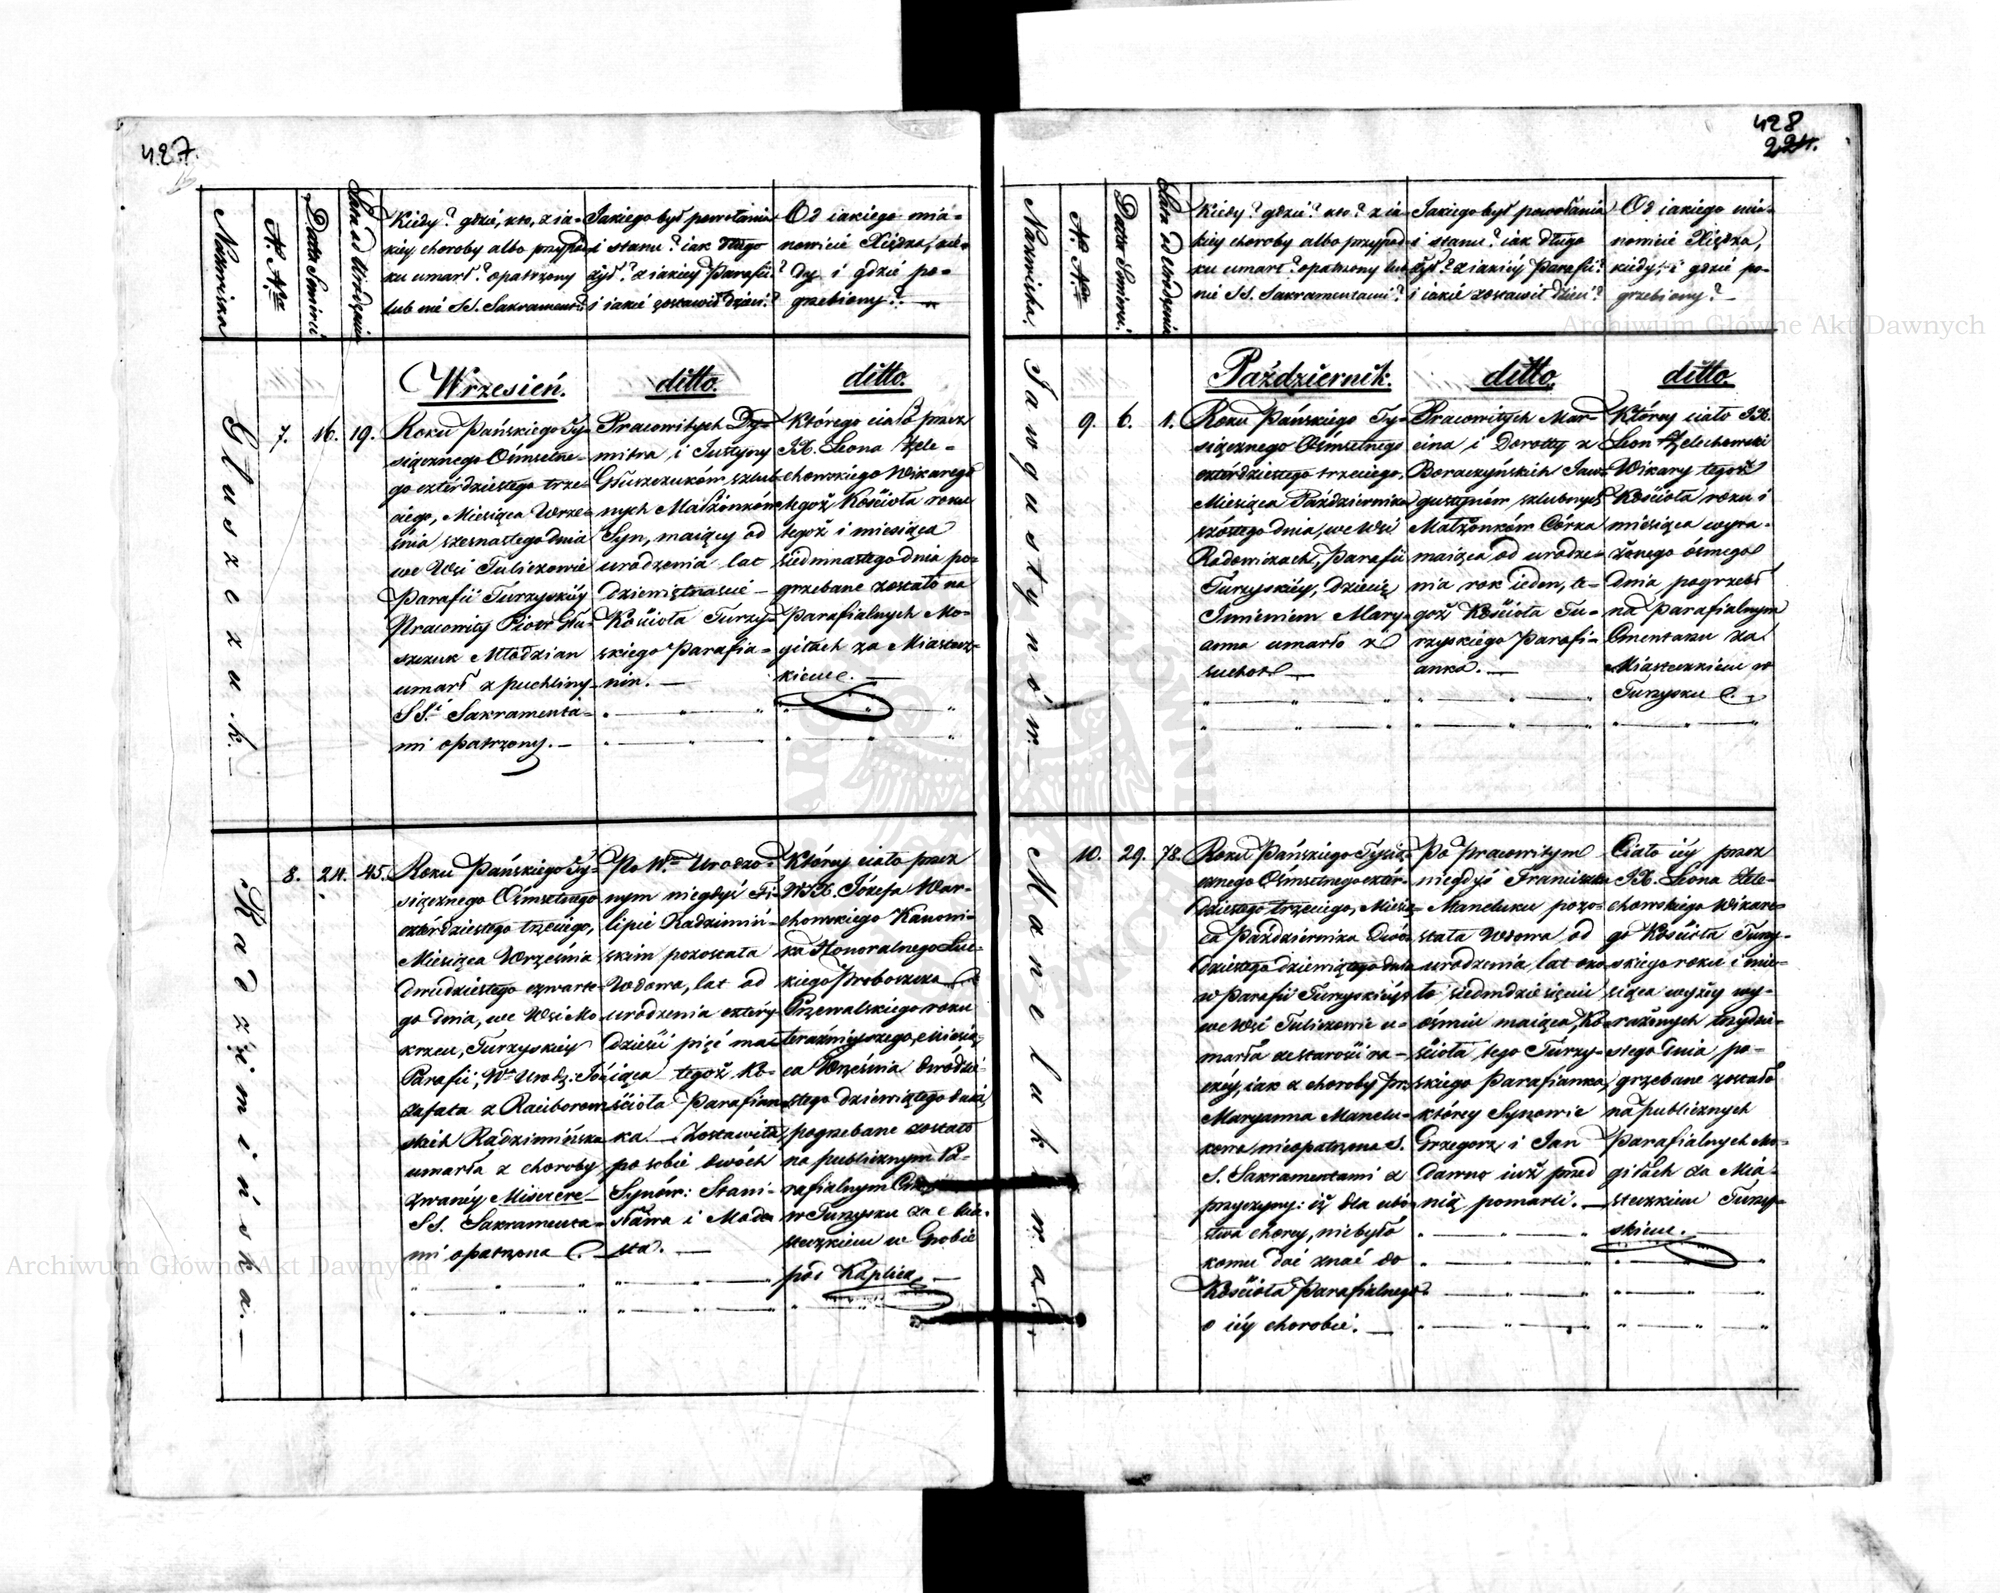 427.
Nazwiska
N. Aktu
Data Śmierci
Lata od Urodzenia
Kiedy? gdzie, kto, z ia-
kiey choroby albo przypad-
ku umarł? opatrzony
lub nié SS. Sakramentami?
Jakiego był powołania
i stanu? iak długo
żył? z iakiey Parafii?
i iakié zostawił dzieci?
Od iakiego mia-
nowicie Xiędza, kié-
dy i gdzié po-
grzebiony?
Wrzesień.
ditto.
ditto.
Głuszczuk.
7.
16.
19.
Roku Pańskiego Ty-
siącznego Ośmsetne-
go czterdziestego trze-
ciego, Miesiąca Wrze-
śnia szesnastego dnia
we Wsi Tuliczowie
Parafii Turzyskiéy
Pracowity Piotr Głu-
szczuk Młodzian
umarł z puchliny
SS. Sakramenta-
mi opatrzony.
Pracowitych Dy-
mitra i Justyny
Głuszczuków, szlub-
nych Małżonków
Syn, maiący od
urodzenia lat
dziewiętnaście
Kościoła Turzy-
skiego Parafia-
nin.
Którego ciało przez
JX. Leona Żele-
chowskiego Wikarego
tegoż Kościoła roku
tegoż i miesiąca
siedmnastego dnia po-
grzebane zostało na
Parafialnych Mo-
giłach za Miastecz-
kiem.
Radzimińska.
8.
24.
45.
Roku Pańskiego Ty-
siącznego Ośmsetnego
czterdziestego trzeciego,
Miesiąca Września
dwudziestego czwarte-
go dnia, we Wsi Mo-
krzeu, Turzyskiéy
Parafii, Wa Urodz: Józ-
zefata z Raciborow-
skich Radzimińska
umarła z choroby
zwanéy Miserere
SS. Sakramenta-
mi opatrzona.
Po Wm Urodzo-
nym niegdyś Fi-
lipie Radzimiń-
skim pozostała
Wdowa, lat od
urodzenia cztéry-
dzieści pięć ma-
iąca tegoż Ko-
ścioła Parafian-
ka. Zostawiła
po sobie dwóch
Synów: Stani-
sława i Mode-
sta.
Któréy ciało przez
WJX. Józefa War-
chowskiego Kanoni-
ka Honoralnego Łuc-
kiego Proboszcza
Przewalskiego roku
teraźnieyszego, Miesią-
ca Września dwódzie-
stego dziewiątego dnia
pogrzebane zostało
na publicznym Pa-
rafialnym
w Turzysku za Mia-
steczkiem w Grobie
pod Kaplicą.
428
224.
Nazwiska.
N. Aktu
Data Śmierci.
Lata od Urodzenia
Kiedy? gdzié? kto? z ia-
kiey choroby albo przypad-
ku umarł? opatrzony lub
nié SS. Sakramentami?
Jakiego był powołania
i stanu? iak długo
żył? z iakiéy Parafii?
i iakié zostawił dzieci?
Od iakiego mia-
nowicie Xiędza,
kiédy, i gdzié po-
grzebiony?
Październik.
ditto.
ditto.
Jawgustynów na
9.
6.
1.
Roku Pańskiego Ty-
siącznego Ośmsetnego
czterdziestego trzeciego,
Miesiąca Października
szóstego dnia, we Wsi
Radowiczach, Parafii
Turzyskiéy, Dziecię
Imieniem Mary-
anna umarło z
suchot
Pracowitych Mar-
cina i Dorotty z
Boraczyńskich Jaw-
gustynów, szlubnych
Małżonków Córka
maiąca od urodze-
nia rok ieden, te-
goż Kościoła Tu-
rzyskiego Parafi-
anka.
Któréy ciało JX.
Leon Żelechowski
Wikary tegoż
Kościoła roku i
miesiąca wyra-
żonego ósmego
dnia pogrzebł
na Parafialnym
Cmentarzu za
Miasteczkiem w
Turzysku.
Manelukowa.
10.
29.
78.
Roku Pańskiego Tysią-
cznego Ośmsetnego czter-
dziestego trzeciego, Miesią-
ca Października Dwó-
dziestego dziewiątego dnia
w Parafii Turzyskiéy
we Wsi Tuliczowie u-
marła ze starości ra-
czéy, iak z choroby Pr.
Maryanna Manelu-
kowa nieopatrzona S.
S. Sakramentami z
przyczyny: iż dla ubó-
stwa choréy, niebyło
komu dać znać do
Kościoła Parafialnego
o iéy chorobie.
Po Pracowitym
niegdyś Franciszku
Maneluku pozo-
stała Wdowa od
urodzenia lat oko-
ło siedmdziesięciu
ośmiu maiąca, Ko-
ścioła tego Turzy-
skiego Parafianka,
któréy Synowie
Grzegorz i Jan
dawno iuż przed
nią pomarli.
Ciało iéy przez
JX. Leona Żele-
chowskiego Wikare-
go Kościoła Turzy-
skiego roku i mie-
siąca wyżéy wy-
rażonych trzydzie-
stego dnia po-
grzebane zostało
na publicznych
Parafialnych Mo-
giłach za Mia-
steczkiem Turzy-
skiem.
Archiwum Główne Akt Dawnych
Archiwum Główne Akt Dawnych